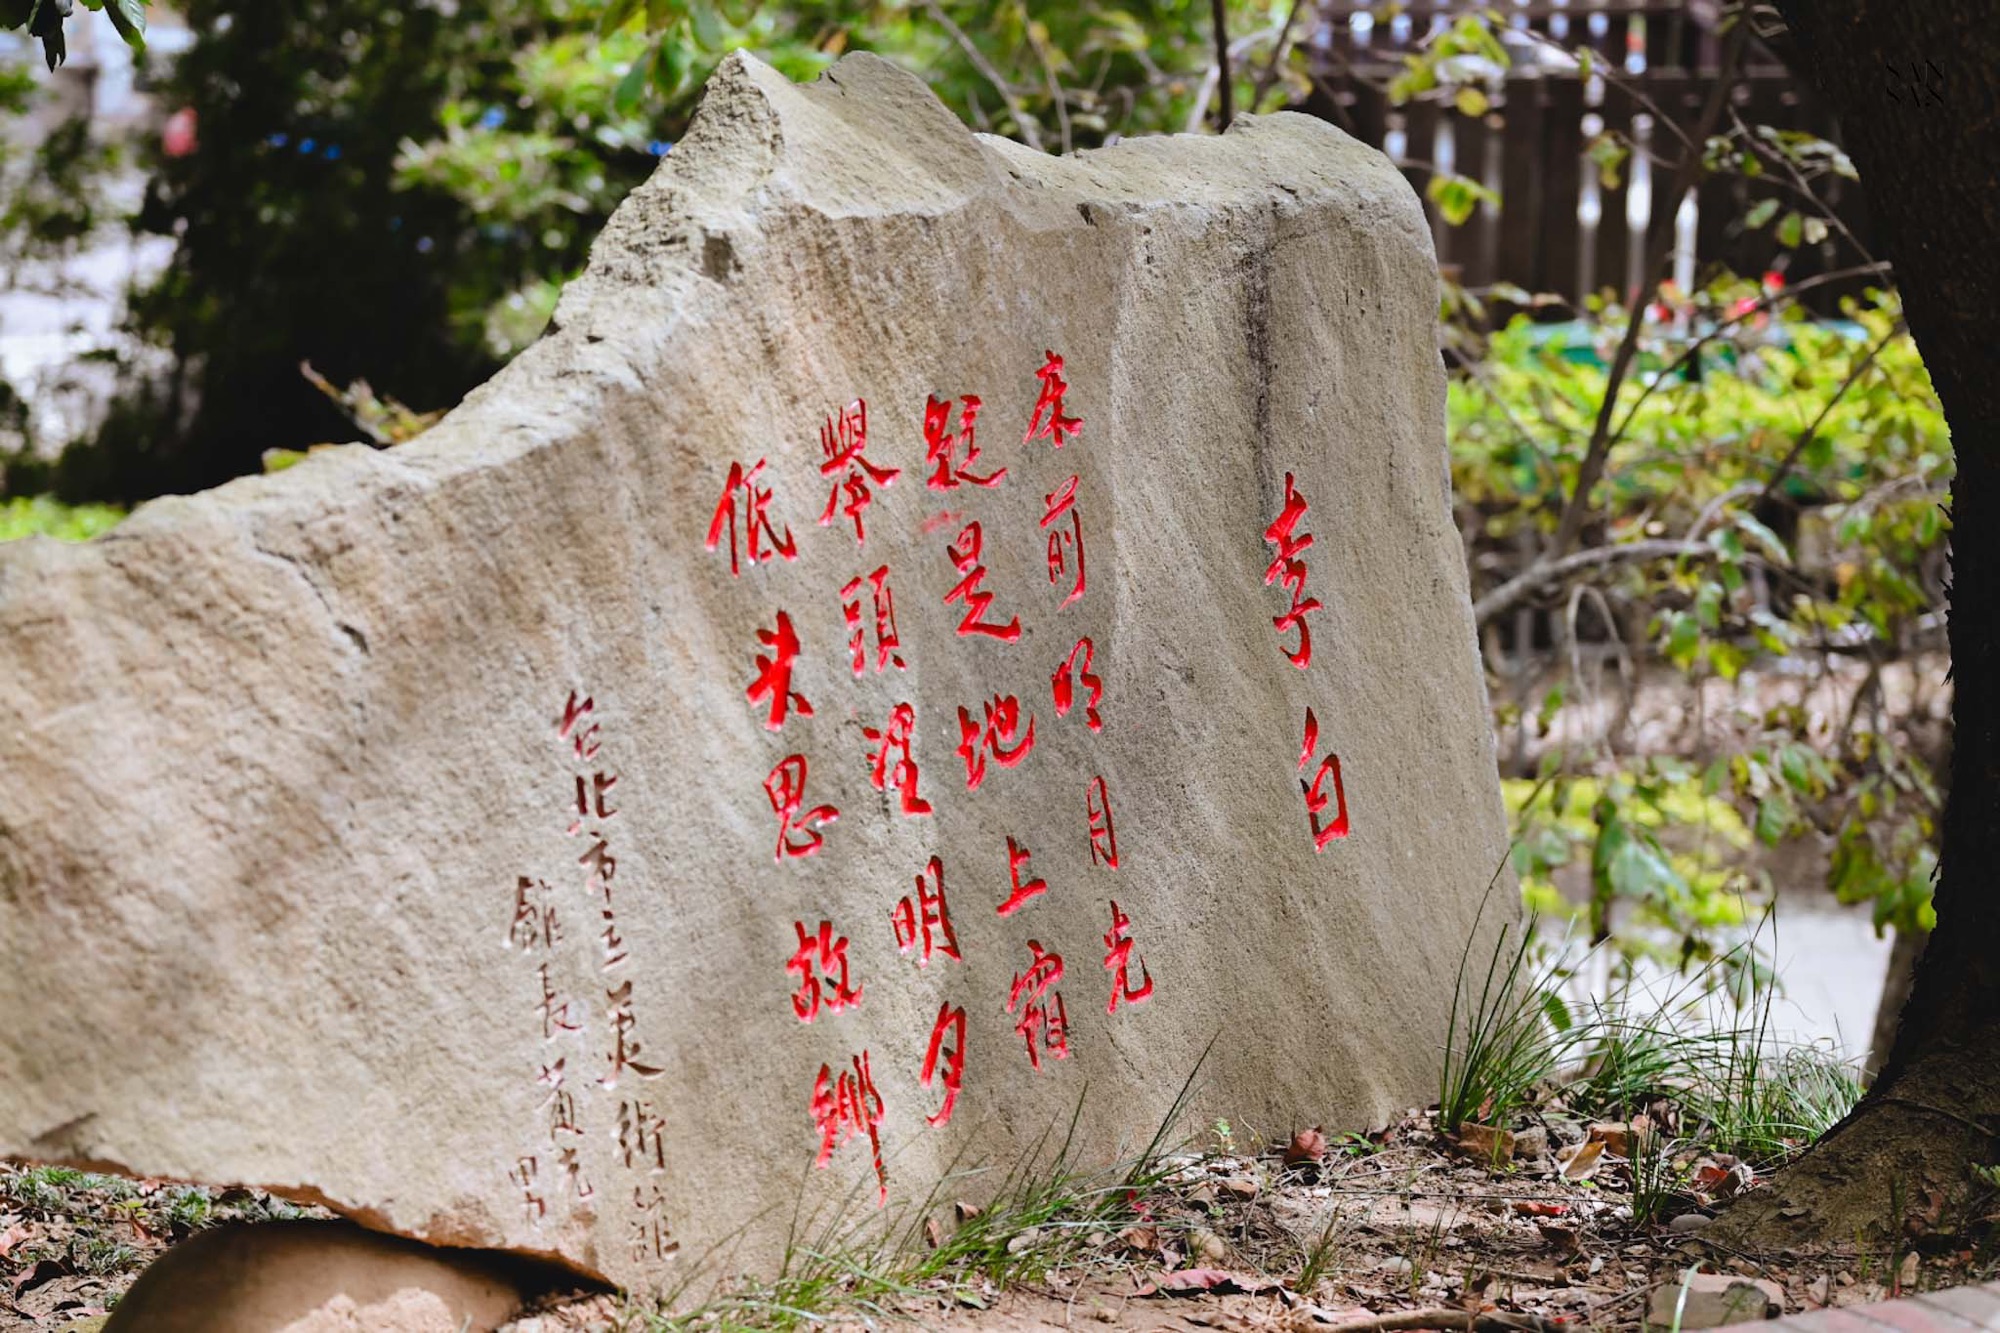 李白
床前明月光
疑是地上霜
舉頭望明月
低头思故鄉
台北市立美術館
館長黃光男